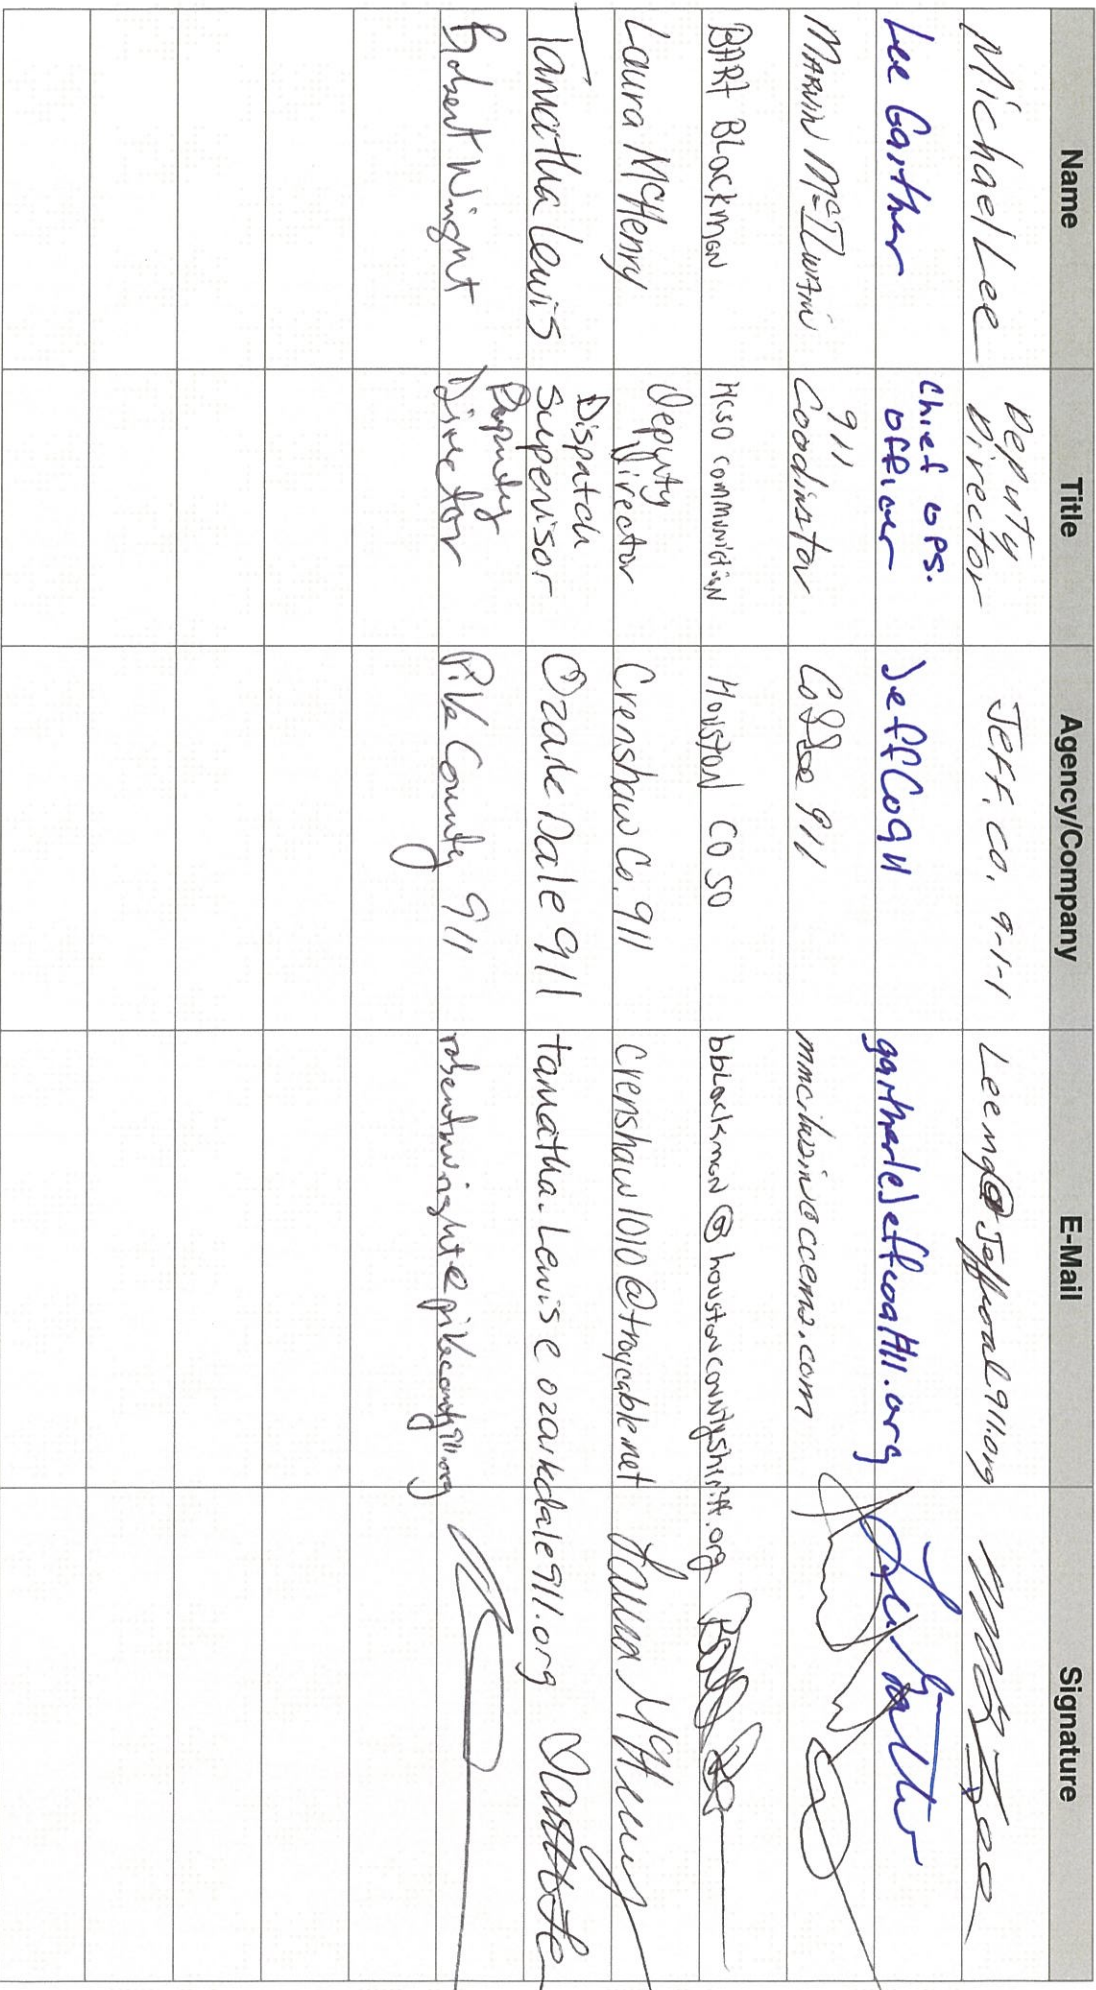 Name Title Agency/Company E-Mail Signature
Michael Lee Deputy Director Jeff. Co. 9-1-1
Lee Garther Chief ops. officer Jeffco911
Marvin McIlwain 911 Coordinator Coffee 911
BART Blackman HCSO communiction Houston CO SO bblackman@houstoncountysheriff.org
Laura McHenry Deputy Director Crenshaw Co. 911 Crenshaw1010@troycable.net Laura McHenry
Tamatha Lewis Dispatch Supervisor Ozark Dale 911 tamatha.lewis@ozarkdale911.org
Robert Wright Deputy Director Pike County 911 robertwright@pikecounty911.org